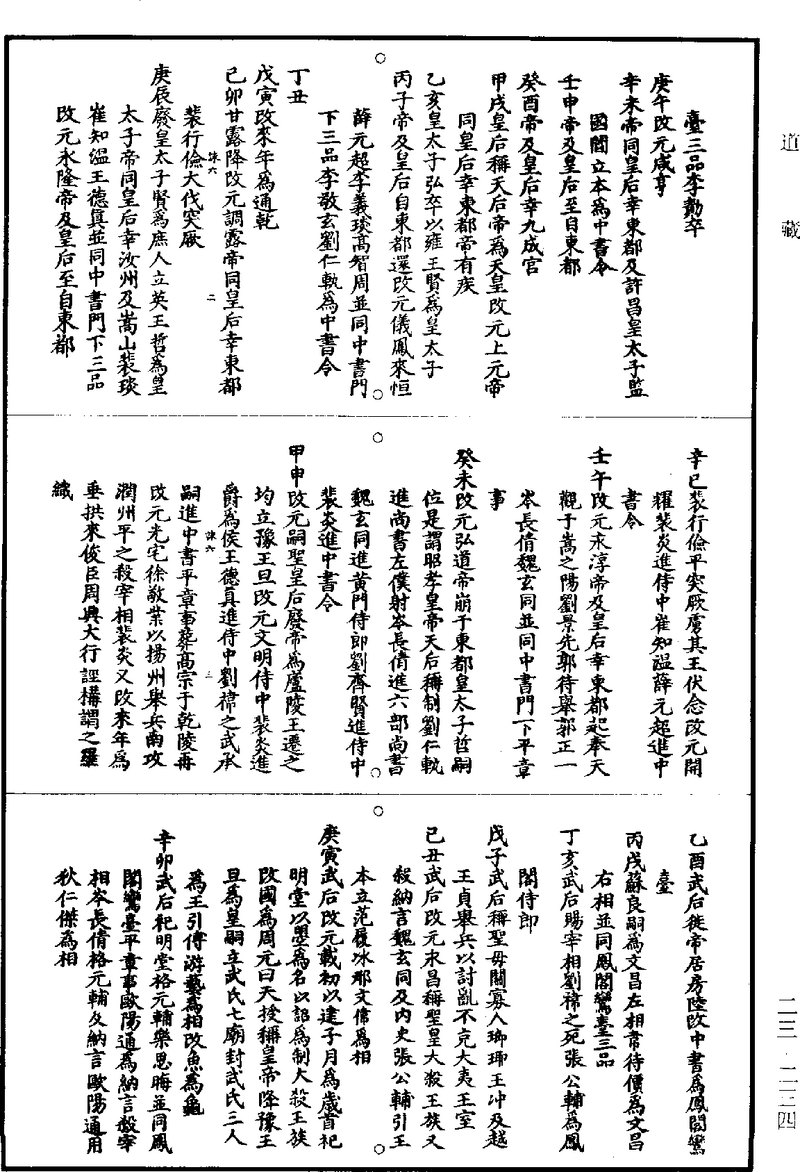 道藏
臺三品李勣卒
庚午改元咸亨
辛未帝同皇后幸東都及許昌皇太子監
國閻立本為中書令
壬申帝及皇后至自東都
癸酉帝及皇后幸九成宮
甲戌皇后稱天后帝為天皇改元上元帝
同皇后幸東都帝有疾
乙亥皇太子弘卒以雍王賢為皇太子
丙子帝及皇后自東都還改元儀鳳來恒
薛元超李義琰高智周並同中書門
下三品李敬玄劉仁軌為中書令
丁丑
戊寅改來年為通乾
己卯甘露降改元調露帝同皇后幸東都
裴行儉大伐突厥
庚辰廢皇太子賢為庶人立英王哲為皇
太子帝同皇后幸汝州及嵩山裴琰
崔知溫王德真並同中書門下三品
改元永隆帝及皇后至自東都
辛巳裴行儉平突厥虜其王伏念改元開
耀裴炎進侍中崔知溫薛元超進中
書令
壬午改元永淳帝及皇后幸東都起奉天
觀于嵩之陽劉景先郭待舉郭正一
岑長倩魏玄同並同中書門下平章
事
癸未改元弘道帝崩于東都皇太子哲嗣
位是謂昭孝皇帝天后稱制劉仁軌
進尚書左僕射岑長倩進六部尚書
魏玄同進黃門侍郎劉齊賢進侍中
裴炎進中書令
甲申改元嗣聖皇后廢帝為廬陵王遷之
均立豫王旦改元文明侍中裴炎進
爵為侯王德真進侍中劉禕之武承
嗣進中書平章事葬高宗于乾陵再
改元光宅徐敬業以揚州舉兵南攻
潤州平之殺宰相裴炎又改來年為
垂拱來俊臣周興大行誣構謂之羅
織
乙酉武后徙帝居房陵改中書為鳳閣鸞
臺
丙戌蘇良嗣為文昌左相韋待價為文昌
右相並同鳳閣鸞臺三品
丁亥武后賜宰相劉禕之死張公輔為鳳
閣侍郎
戊子武后稱聖母關寡人瑯琊王沖及越
王貞舉兵以討亂不克大夷王室
己丑武后改元永昌稱聖皇大殺王族又
殺納言魏玄同及內史張公輔引王
本立范履冰邢文偉為相
庚寅武后改元載初以建子月為歲首祀
明堂以曌為名以詔為制大殺王族
改國為周元曰天授稱皇帝降豫王
旦為皇嗣立武氏七廟封武氏三人
為王引傅游藝為相改魚為龜
辛卯武后祀明堂格元輔樂思晦並同鳳
閣鸞臺平章事歐陽通為納言殺宰
相岑長倩格元輔及納言歐陽通用
狄仁傑為相
二三·二二四